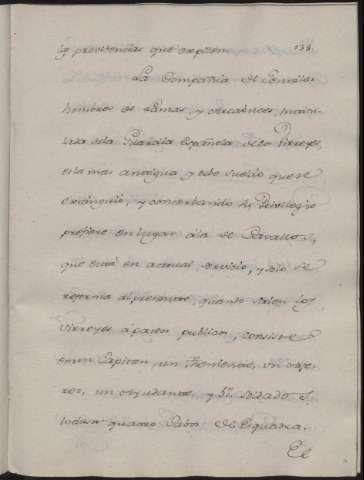 las providencias que expresa. 138.
La Compañia de Gentiles
hombres de Lanzas, y Arcabuces, 
de la Guardia Española de los Virreyes,
es la mas antigua, y esto sueldo que se
extinguió, y conserbando su Privilegio
prefiere en lugar á la de Cavallos,
que está en actual servicio, y solo se
reforma al presente, quando salen los
Virreyes á pasos publicos, consiste
en un Capitan un Theniente, un 
un Ayudante, y Soldados, 
quatro Cabos de Esquadra.
El